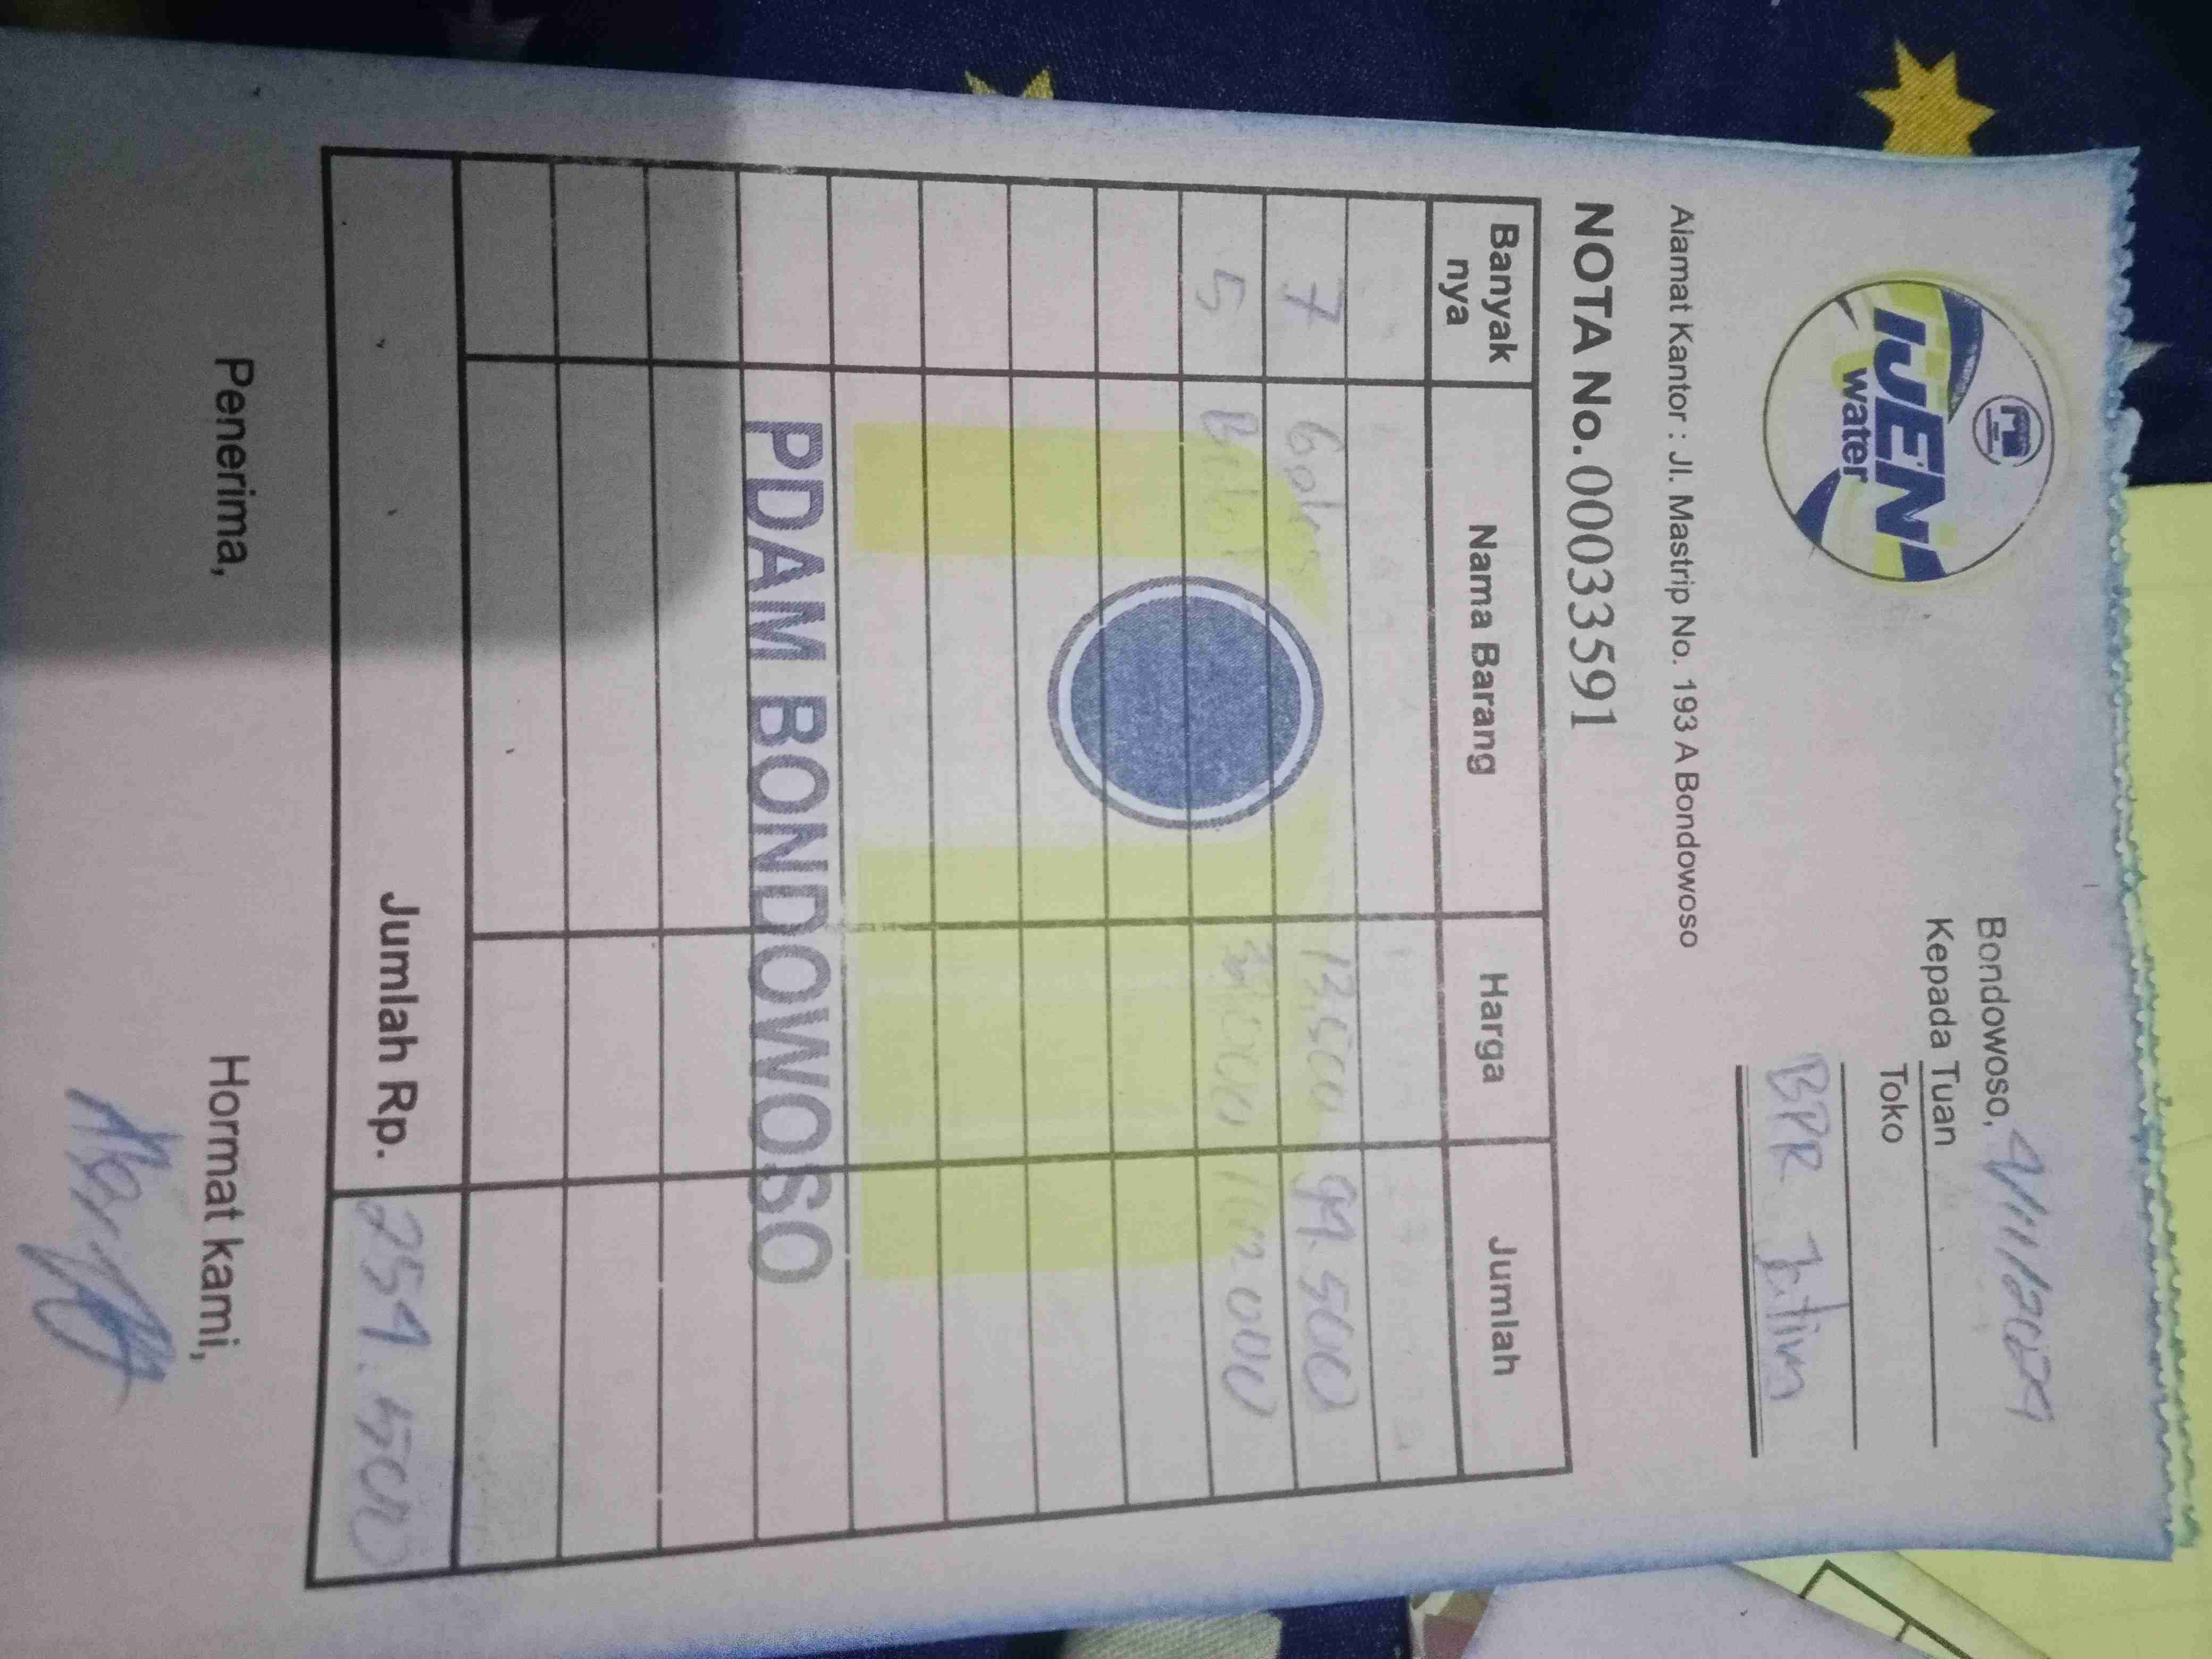 IJEN
water
Bondowoso, 4/11/2024
Kepada Tuan
Toko
BPR Jatim
Alamat Kantor : Jl. Mastrip No. 193 A Bondowoso
NOTA No. 00033591
Banyak nya Nama Barang Harga Jumlah
7 13,500 94.500
5 32.000 160 000
PDAM BONDOWOSO
Jumlah Rp. 254.500
Penerima, Hormat kami,